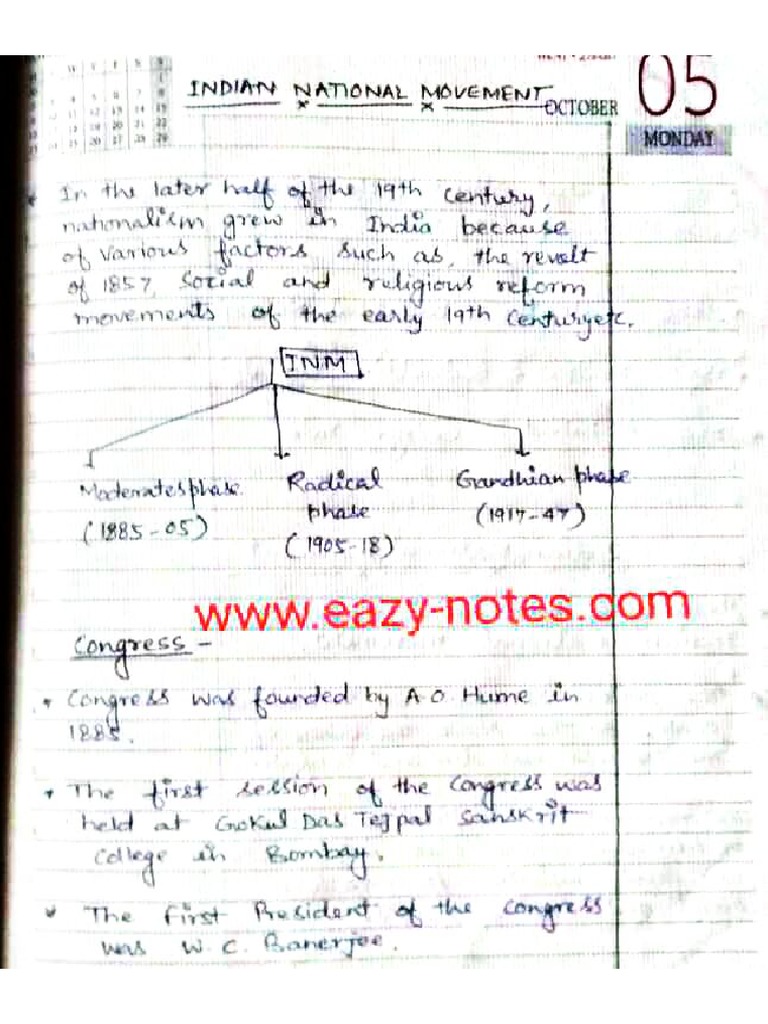 INDIAN NATIONAL MOVEMENT
OCTOBER
05
MONDAY
In the later half of the 19th Century,
nationalism grew in India because
of various factors such as, the revolt
of 1857, Social and religious reform
movements of the early 19th Century etc.
INM
Moderates phase
(1885-05)
Radical
phase
(1905-18)
Gandhian phase
(1917-47)
www.eazy-notes.com
Congress -
Congress was founded by A.O. Hume in
1885.
The first session of the Congress was
held at Gokul Das Tejpal Sanskrit
College in Bombay.
The First President of the Congress
was W.C. Banerjee.